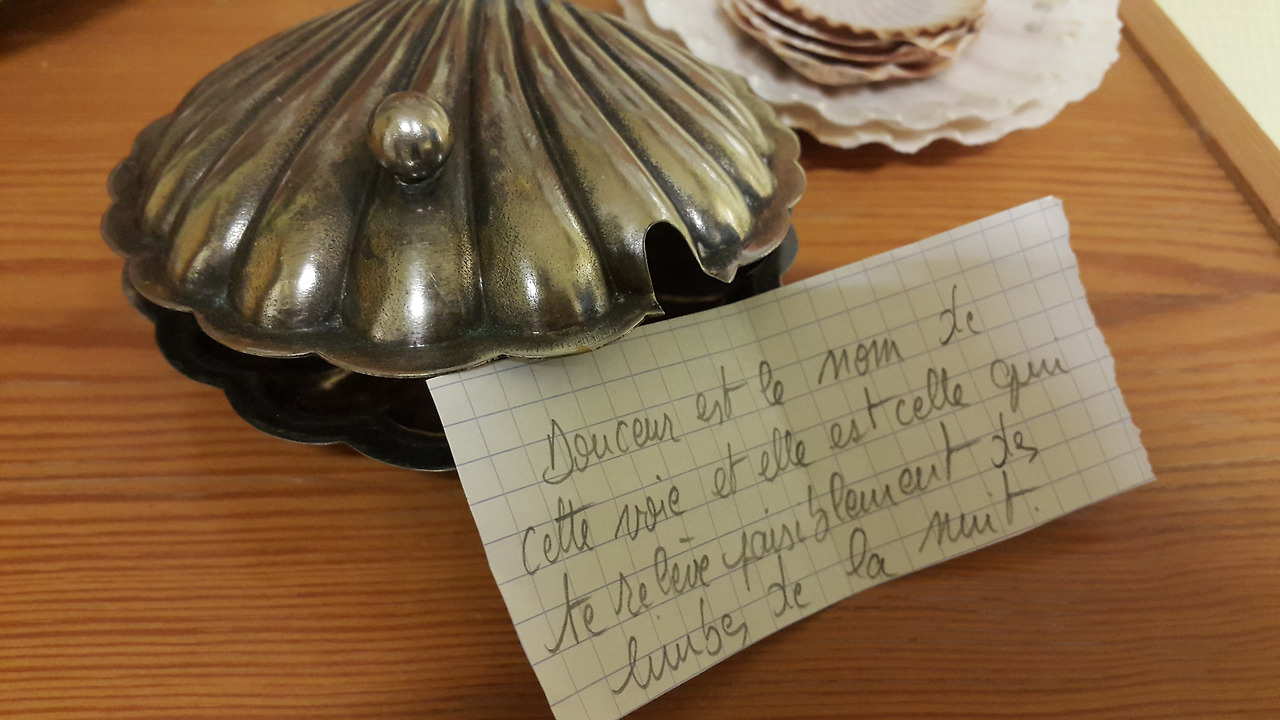 Douceur est le nom de
cette voie et elle est celle qui
te relève paisiblement des
limbes de la nuit.